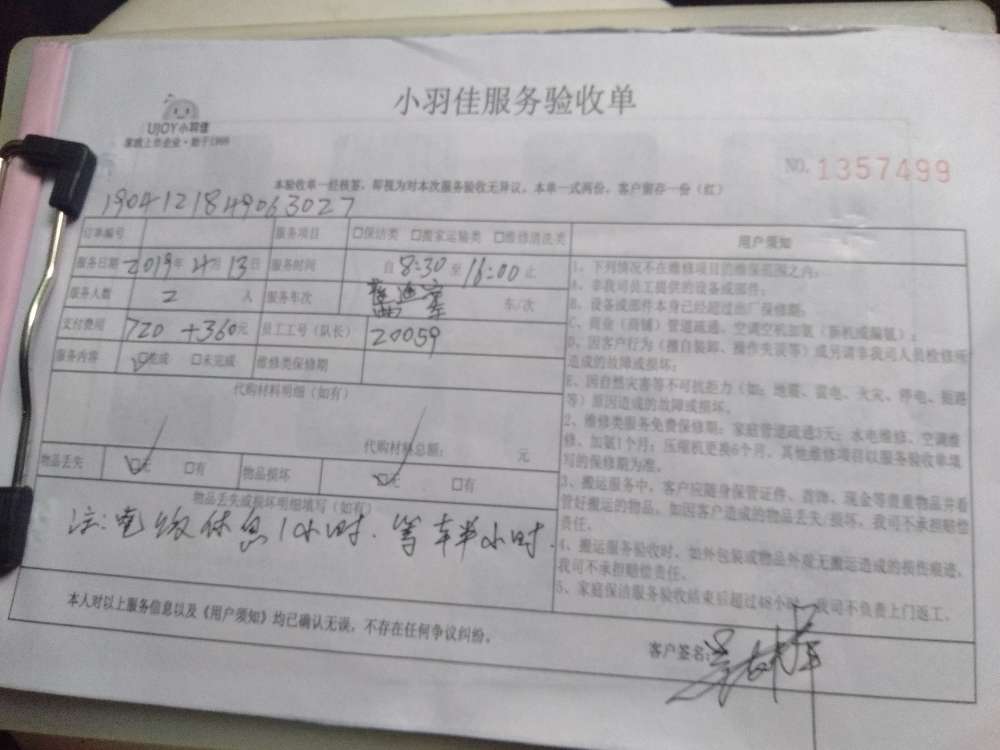 小羽佳服务验收单
UJOY小羽佳
家政上市企业·始于1999
NO. 1357499
本验收单一经核签，即视为对本次服务验收无异议，本单一式两份，客户留存一份（红）
1904121849063027
订单编号 服务项目 □保洁类 □搬家运输类 □维修清洗类
服务日期 2019年4月13日 服务时间 自 8:30 至 16:00 止
服务人数 2 人 服务车次 车/次
支付费用 720 +360元 员工工号（队长） 20059
服务内容 ☑完成 □未完成 维修类保修期
代购材料明细（如有）
代购材料总额： 元
物品丢失 ☑无 □有 物品损坏 ☑无 □有
物品丢失或损坏明细填写（如有）
注：电梯休息1小时．等车半小时．
用户须知
1、下列情况不在维修项目的维保范围之内：
A、非我司员工提供的设备或部件；
B、设备或部件本身已经超过出厂保修期；
C、商业（商铺）管道疏通、空调空机加氨（新机或漏氨）；
D、因客户行为（擅自装卸、操作失误等）或另请非我司人员检修所
造成的故障或损坏；
E、因自然灾害等不可抗拒力（如：地震、雷电、火灾、停电、短路
等）原因造成的故障或损坏。
2、维修类服务免费保修期：家庭管道疏通3天；水电维修、空调维
修、加氨1个月；压缩机更换6个月。其他维修项目以服务验收单填
写的保修期为准。
3、搬运服务中，客户应随身保管证件、首饰、现金等贵重物品并看
管好搬运的物品。如因客户造成的物品丢失/损坏，我司不承担赔偿
责任。
4、搬运服务验收时，如外包装或物品外观无搬运造成的损伤痕迹，
我司不承担赔偿责任。
5、家庭保洁服务验收结束后超过48小时，我司不负责上门返工。
本人对以上服务信息以及《用户须知》均已确认无误，不存在任何争议纠纷。
客户签名：